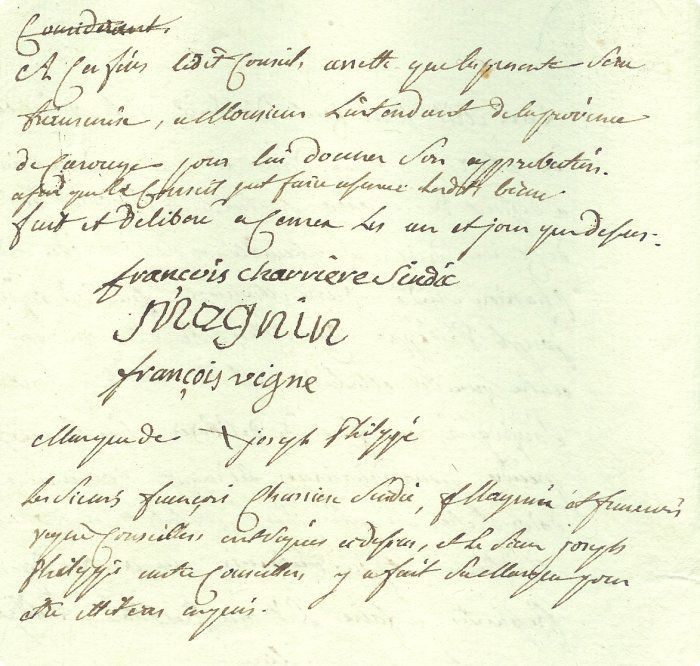 Considerant
A Ces fins ledit Conseil arrette que la presente Sera
transmise, a Monsieur L'intendant de la province
de Carouge pour lui donner Son approbation.
afin que le Conseil put faire usance desdits biens
fait et Deliberé a Cernex Les an et jour que dessus.
françois charriere Sindic
Magnin
françois vigne
Marque de + joseph Philippe
Les Sieurs françois Charriere Sindic, Magnin et francois
vigne Conseillers ont Signés cy dessus, et le Sieur joseph
Philippe autre Conseiller y a fait Sa Marque pour
etre illiteré enquis.